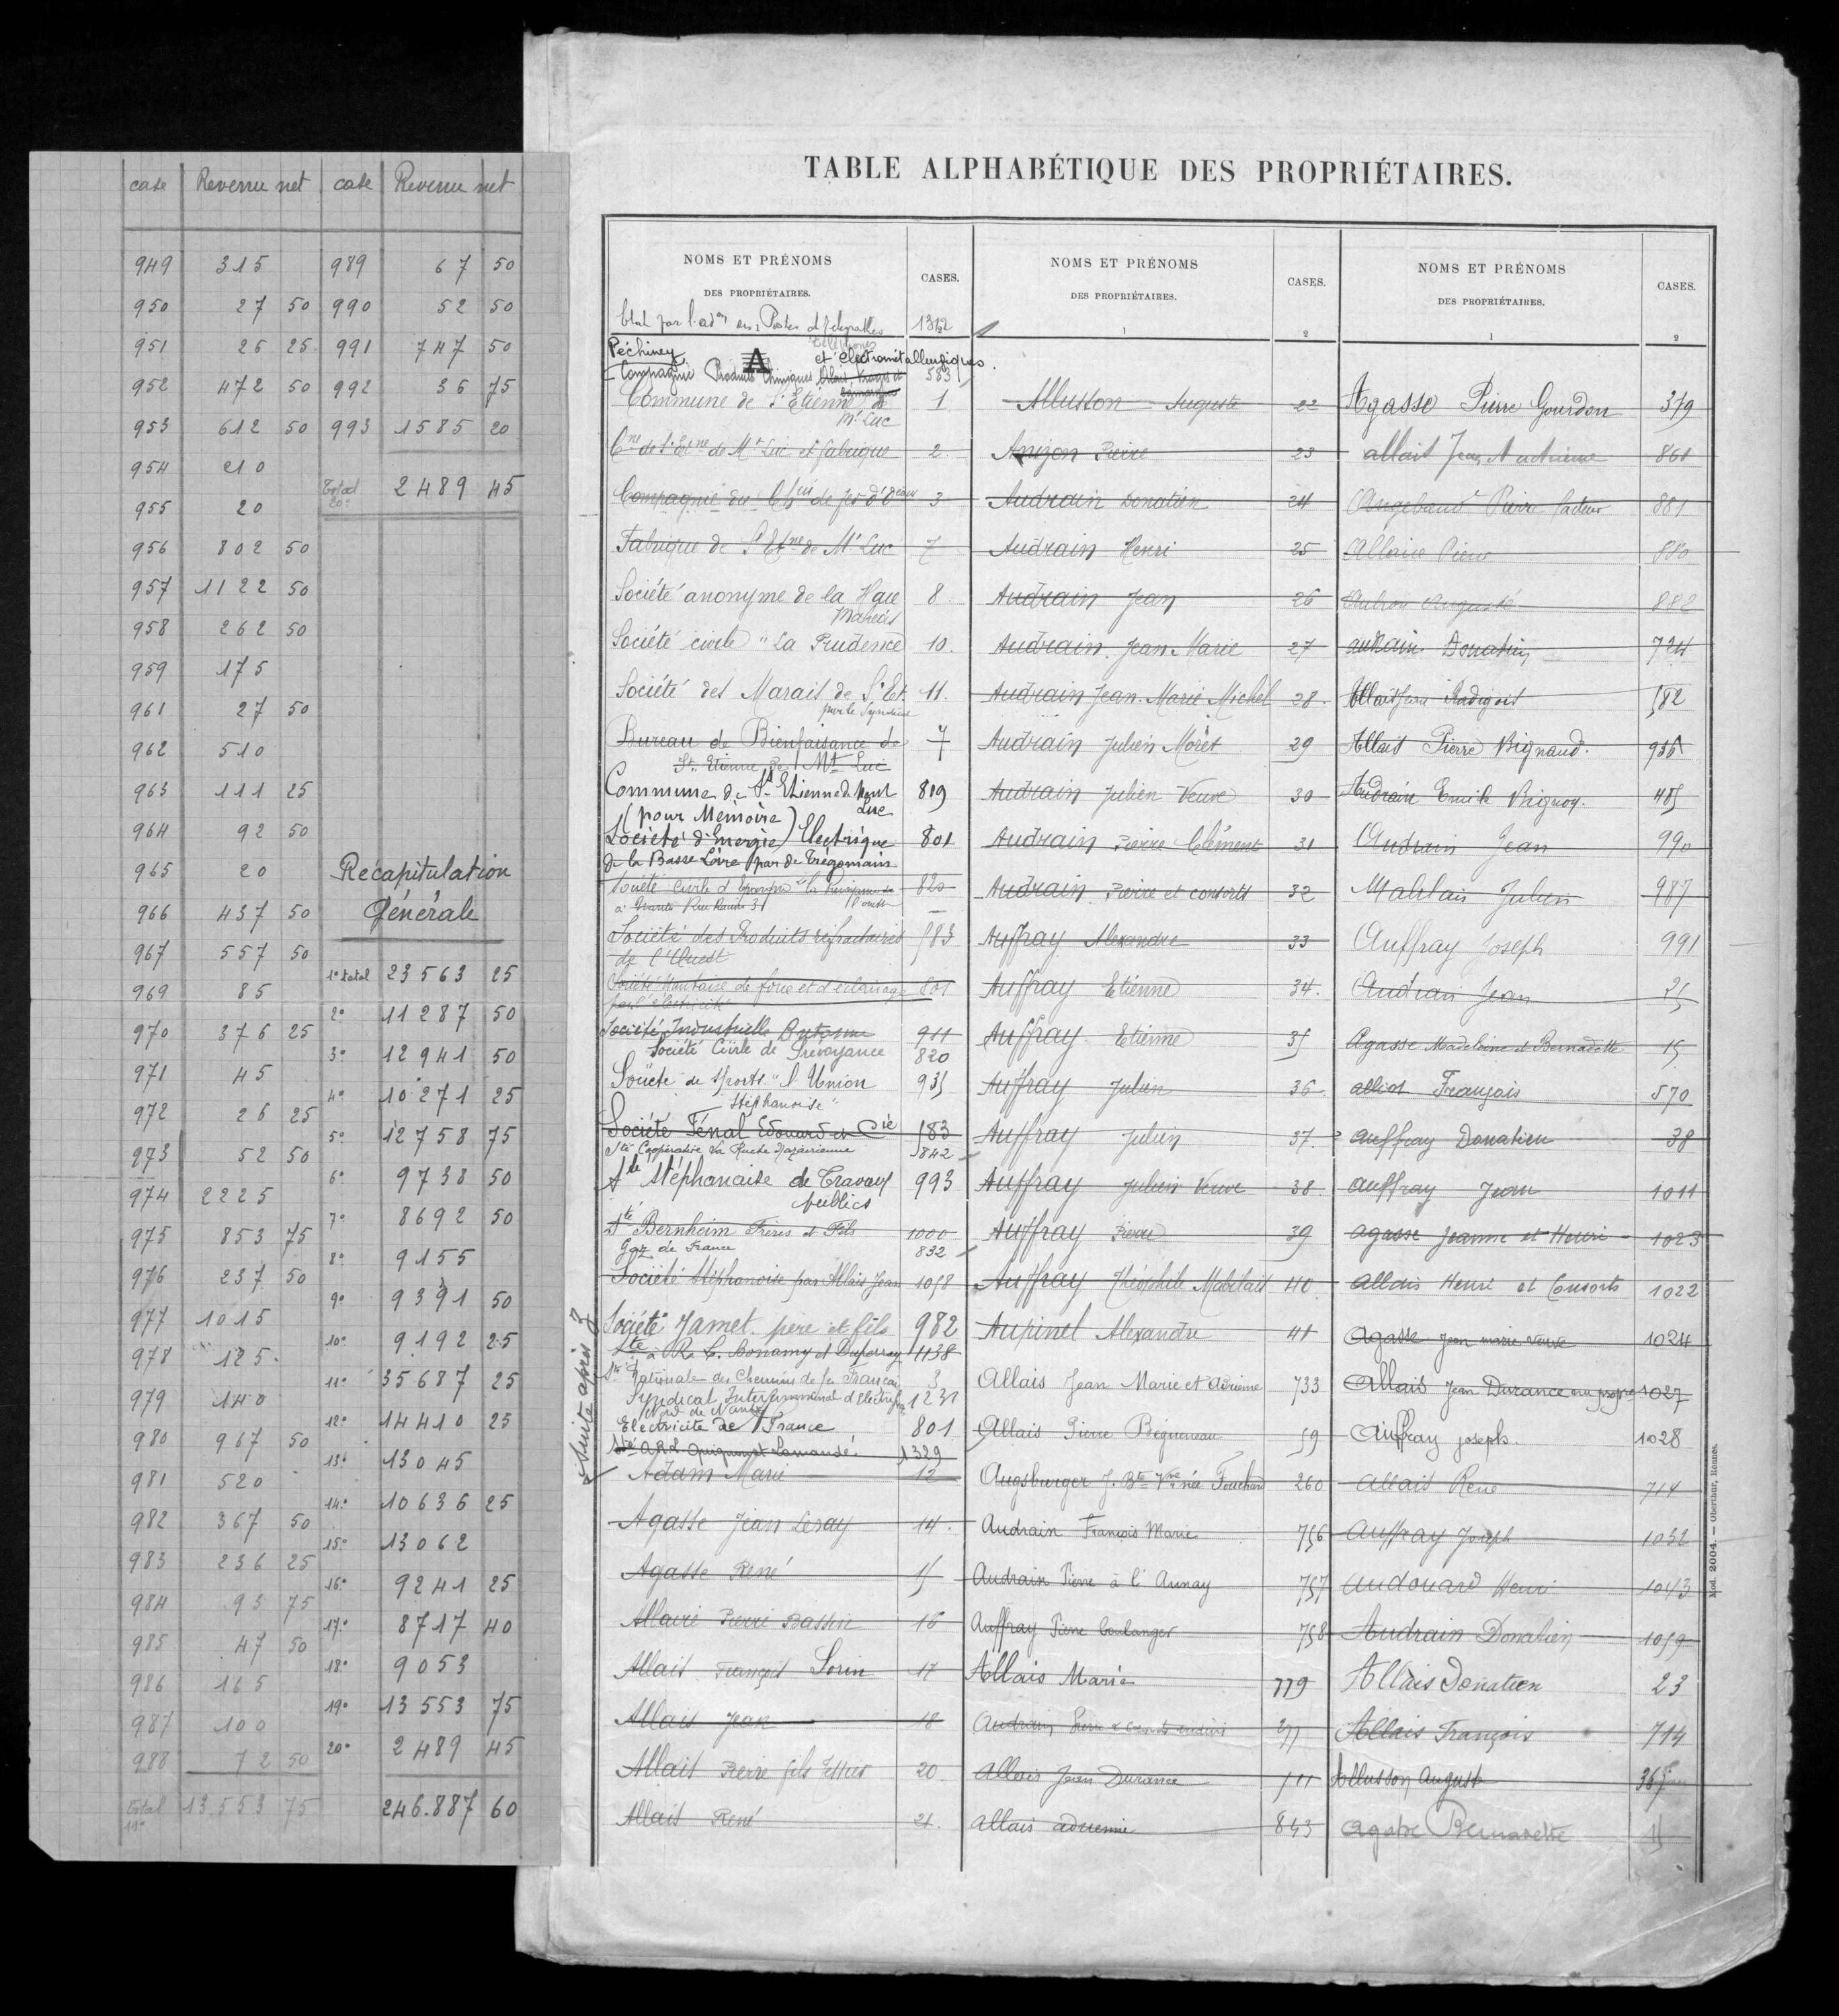 case Revenu net case Revenu net
949 315 989 67 50
950 27 50 990 52 50
951 26 25 991 747 50
952 472 50 992 36 75
953 612 50 993 1585 20
954 210
Total 20e 2489 45
955 20
956 802 50
957 1122 50
958 262 50
959 175
961 27 50
962 510
963 111 25
964 92 50
965 20
966 437 50
967 557 50
969 85
970 376 25
971 45
972 26 25
973 52 50
974 2225
975 853 75
976 237 50
977 1015
978 125
979 140
980 967 50
981 520
982 367 50
983 236 25
984 93 75
985 47 50
986 165
987 100
988 72 50
Total 19e 13553 75
Récapitulation
Générale
1e total 23563 25
2e 11287 50
3e 12941 50
4e 10271 25
5e 12758 75
6e 9738 50
7e 8692 50
8e 9155
9e 9391 50
10e 9192 25
11e 35687 25
12e 14410 25
13e 13045
14e 10636 25
15e 13062
16e 9241 25
17e 8717 40
18e 9053
19e 13553 75
20e 2489 45
246.887 60
TABLE ALPHABÉTIQUE DES PROPRIÉTAIRES.
NOMS ET PRÉNOMS
DES PROPRIÉTAIRES.
CASES.
Etat par l'adon des Postes et Télégraphes 1312
Téléphones
Péchiney
A
et électrométallurgiques.
Compagnie Produits Chimiques Alais, Froges et Camargue 583
Commune de St Etienne de Mt Luc 1
Cne de St Etne de Mt Luc et fabrique 2
Compagnie des Chins de fer d'Orléans 3
Fabrique de St Etne de Mt Luc 7
Société anonyme de la Haie Mahéas 8
Société civile "La Prudence 10.
Société des Marais de St Et. 11.
par le Syndicat
Bureau de Bienfaisance de 4
St. Etienne de Mt Luc
Commune de St Etienne de Mont Luc 819
(pour Mémoire)
Société d'Energie Electrique 801
de la Basse Loire par de Trégomain
Société Civile d'Epargne "la Prévoyance 820
à Nantes Rue 31
Société des Produits réfractaires 583
de l'Ouest
Société Nantaise de force et d'éclairage 801
par l'électricité
Société Industrielle Automne 911
Société Civile de Prévoyance 820
Société de Sports "l'Union 935
Stéphanoise"
Société Fénal Edouard et Cie 583
Sté Coopérative La Ruche Nazairienne 842
Sté Stéphanaise de Travaux 993
publics
Sté Bernheim Frères et Fils 1000
Gaz de France 832
Société Stéphanoise par Allais Jean 1058
Société Jamet père et fils 982
Sté à R. L. Bonamy et 1138
Sté Nationale des Chemins de fer Français 3
Syndicat Intercommunal d'Electrif. 1231
Nord de Nantes
Electricité de France 801
Sté A.R.L. Lamandé. 1329
Suite après Z
Adam Marie 12
Agasse Jean Leray 14.
Agasse René 15
Allaire Pierre Bassin 16
Allais François Lorin 17
Allais Jean 18
Allais Pierre fils 20
Allais René 21.
NOMS ET PRÉNOMS
DES PROPRIÉTAIRES.
CASES.
1 2
Allusson Auguste 22
Anizon Pierre 23
Audrain Donatien 24
Audrain Henri 25
Audrain Jean 26
Audrain Jean Marie 27
Audrain Jean Marie Michel 28.
Audrain Julien Moret 29
Audrain Julien Veuve 30
Audrain Pierre Clément 31
Audrain Pierre et consorts 32
Auffray Alexandre 33
Auffray Etienne 34.
Auffray Etienne 35
Auffray Julien 36.
Auffray Julien 37.
Auffray Julien Veuve 38
Auffray Pierre 39
Auffray Théophile Mabilais 40
Aupinel Alexandre 41
Allais Jean Marie et Adrienne 733
Allais Pierre Béguineau 59
Augsburger J. Bte Vve née Fouchard 260
Audrain François Marie 756
Audrain Pierre à l'Aunay 757
Auffray Pierre boulanger 758
Allais Marie 779
Audrain Pierre
Allais Jean Durance 511
Allais adrienne 843
NOMS ET PRÉNOMS
DES PROPRIÉTAIRES.
CASES.
1 2
Agasse Pierre Gourdon 379
allais Jean et Adrienne 861
Angebaud Pierre facteur 881
Allaire Pierre 880
Auguste 882
audrain Donatien 724
Allais Jean Radigois 582
Allais Pierre Bignaud. 936
Audrain Emile Vignoy. 485
Audrain Jean 990
Mabilais Julien 987
Auffray Joseph 991
Audrain Jean 25
Agasse Madeleine et Bernadette 15
alliot François 570
auffray Donatien 38
auffray Jean 1011
agasse Jeanne et Henri 1023
allais Henri et Consorts 1022
Agasse Jean marie veuve 1024
Allais Jean Durance en propre 1027
Auffray joseph. 1028
allais René 714
auffray Joseph 1032
audouard Henri 1043
Audrain Donatien 1059
Allais Donatien 23
Allais François 714
Allusson Auguste 365
agasse Bernadette 15
Mod. 2004. — Oberthur, Rennes.